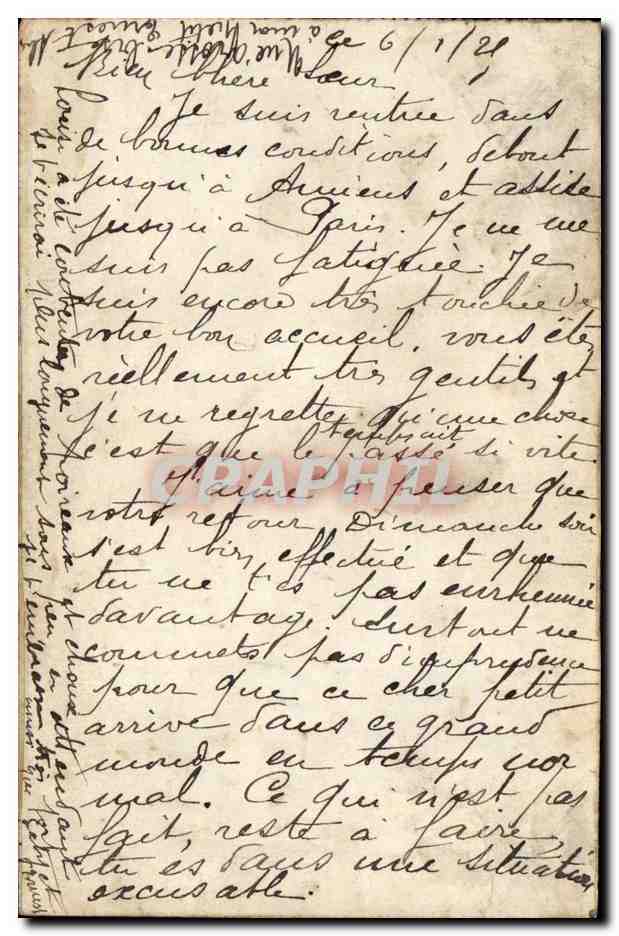 ce 6/1/21
Bien chère Sœur
Je suis rentrée dans
de bonnes conditions, debout
jusqu'à Amiens et assise
jusqu'à Paris. Je ne me
suis pas fatiguée. Je
suis encore très touchée de
votre bon accueil, vous êtes
réellement très gentils et
je ne regrette qu'une chose
c'est que le temps ait passé si vite.
J'aime à penser que
votre retour Dimanche soir
s'est bien effectué et que
tu ne t'es pas enrhumée
davantage. Surtout ne
commets pas d'imprudence
pour que ce cher petit
arrive dans ce grand
monde en temps nor
mal. Ce qui n'est pas
fait, reste à faire,
tu es dans une situation
excusable.
Louise a été contente de poireaux et choux
Je t'écrirai plus longuement sous peu en attendant
je t'embrasse
Une grosse bise
à mon petit Ernest
CPAPHIL